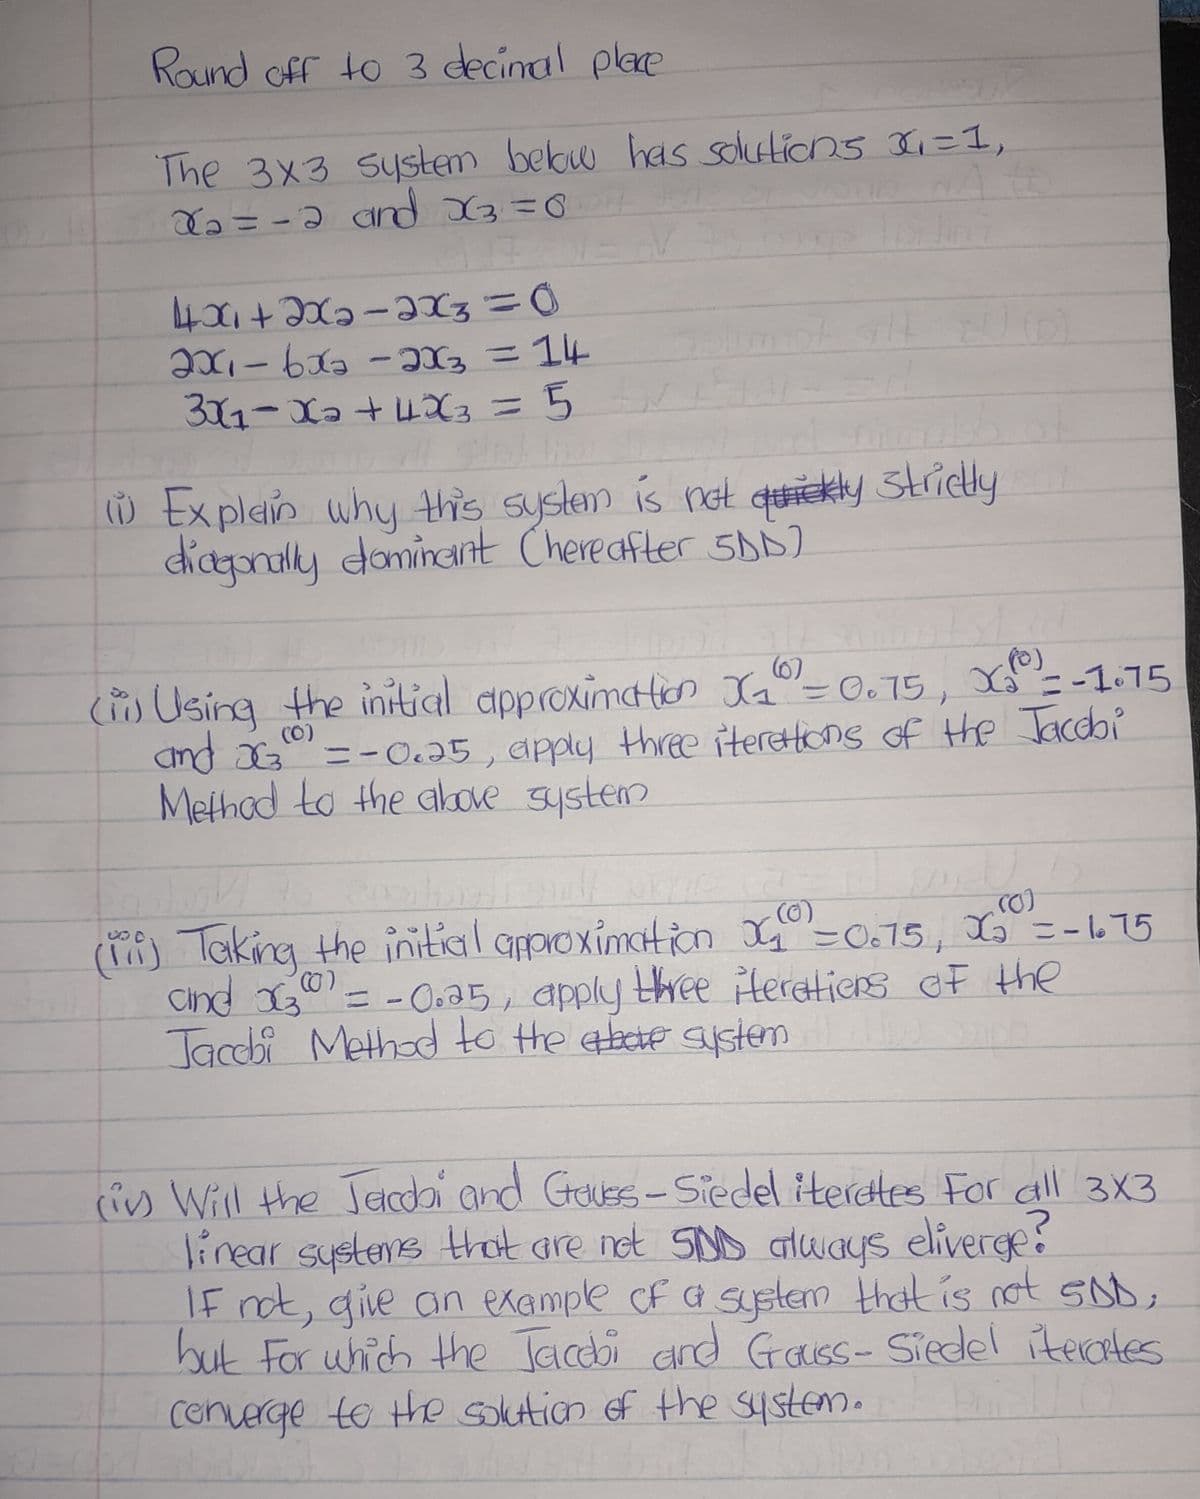 Round off to 3 decimal place
The 3x3 system below has solutions x₁=1,
x₂=-2 and x₃=0
4x₁+2x₂-2x₃=0
2x₁-6x₂-2x₃=14
3x₁-x₂+4x₃=5
(i) Explain why this system is not strictly
diagonally dominant (hereafter SDD)
(ii) Using the initial approximation x₁⁽⁰⁾=0.75, x₂⁽⁰⁾=-1.75
and x₃⁽⁰⁾=-0.25, apply three iterations of the Jacobi
Method to the above system
(iii) Taking the initial approximation x₁⁽⁰⁾=0.75, x₂⁽⁰⁾=-1.75
and x₃⁽⁰⁾=-0.25, apply three iterations of the
Jacobi Method to the above system
(iv) Will the Jacobi and Gauss-Siedel iterates for all 3x3
linear systems that are not SDD always diverge?
If not, give an example of a system that is not SDD,
but for which the Jacobi and Gauss-Siedel iterates
converge to the solution of the system.